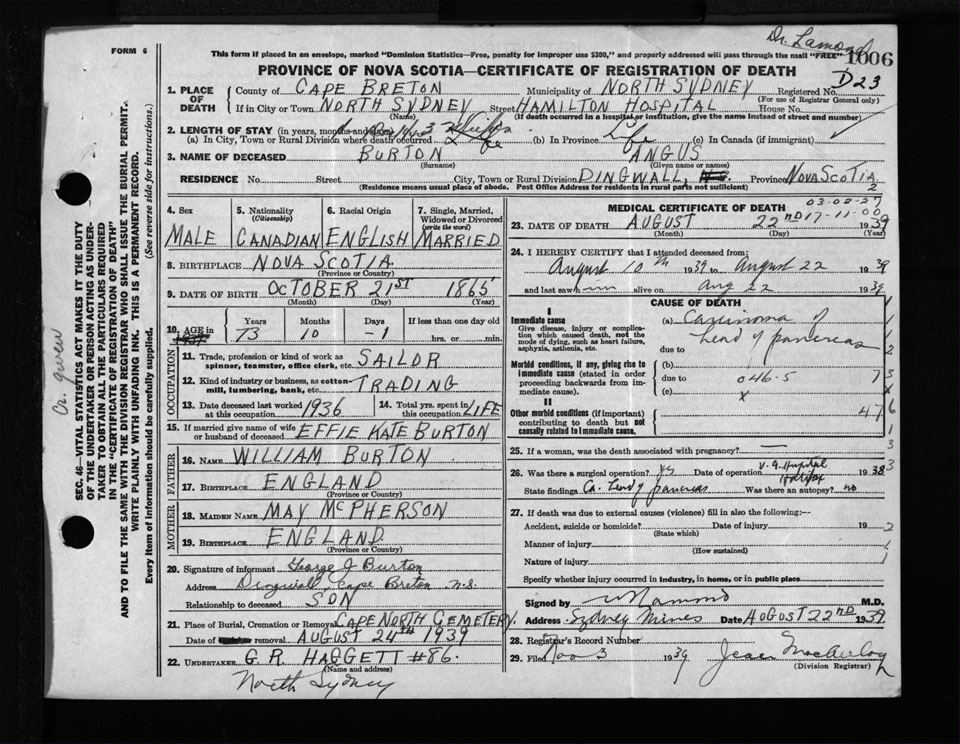 Dr. Lamond
FORM 6
This form if placed in an envelope, marked "Dominion Statistics—Free, penalty for improper use $300," and properly addressed will pass through the mail "FREE"
1006
PROVINCE OF NOVA SCOTIA—CERTIFICATE OF REGISTRATION OF DEATH
D23
1. PLACE OF DEATH County of CAPE BRETON Municipality of NORTH SYDNEY Registered No.
(For use of Registrar General only)
If in City or Town NORTH SYDNEY Street HAMILTON HOSPITAL House No.
(Name) (If death occurred in a hospital or institution, give the name instead of street and number)
2. LENGTH OF STAY (in years, months and days)
(a) In City, Town or Rural Division where death occurred (b) In Province Life (c) In Canada (if immigrant)
3. NAME OF DECEASED BURTON ANGUS
(Surname) (Given name or names)
RESIDENCE No. Street City, Town or Rural Division DINGWALL, Province NOVA SCOTIA
(Residence means usual place of abode. Post Office Address for residents in rural parts not sufficient)
2
4. Sex 5. Nationality (Citizenship) 6. Racial Origin 7. Single, Married, Widowed or Divorced (write the word)
MALE CANADIAN ENGLISH MARRIED
8. BIRTHPLACE NOVA SCOTIA
(Province or Country)
9. DATE OF BIRTH OCTOBER 21ST 1865
(Month) (Day) (Year)
10. AGE in Years Months Days If less than one day old
73 10 -1 hrs. or min.
OCCUPATION
11. Trade, profession or kind of work as spinner, teamster, office clerk, etc. SAILOR
12. Kind of industry or business, as cotton-mill, lumbering, bank, etc. TRADING
13. Date deceased last worked at this occupation 1936 14. Total yrs. spent in this occupation LIFE
15. If married give name of wife or husband of deceased EFFIE KATE BURTON
FATHER
16. Name WILLIAM BURTON
17. Birthplace ENGLAND
(Province or Country)
MOTHER
18. Maiden Name MAY McPHERSON
19. Birthplace ENGLAND
(Province or Country)
20. Signature of informant George J Burton
Address Dingwall, Cape Breton N.S.
Relationship to deceased SON
21. Place of Burial, Cremation or Removal CAPE NORTH CEMETERY.
Date of removal AUGUST 24TH 1939
22. UNDERTAKER G. R. HAGGETT #86.
(Name and address)
North Sydney
MEDICAL CERTIFICATE OF DEATH
03-02-27
17-11-00
23. DATE OF DEATH AUGUST 22ND 1939
(Month) (Day) (Year)
24. I HEREBY CERTIFY that I attended deceased from:
August 10th 1939 to August 22 1939
and last saw him alive on Aug 22 1939
CAUSE OF DEATH
I
Immediate cause (a) Carcinoma of
Give disease, injury or complication which caused death, not the mode of dying, such as heart failure, asphyxia, asthenia, etc. head of pancreas
due to
Morbid conditions, if any, giving rise to immediate cause (stated in order proceeding backwards from immediate cause) (b)
due to 046.5 7
(c) x
II
Other morbid conditions (if important) contributing to death but not causally related to immediate cause. 47
25. If a woman, was the death associated with pregnancy? —
26. Was there a surgical operation? yes Date of operation V. G. Hospital Halifax 1938
State findings Ca. head of pancreas Was there an autopsy? no
27. If death was due to external causes (violence) fill in also the following:—
Accident, suicide or homicide? Date of injury 19
(State which)
Manner of injury
(How sustained)
Nature of injury
Specify whether injury occurred in industry, in home, or in public place
Signed by Lamond M.D.
Address Sydney Mines Date AUGUST 22ND 1939
28. Registrar's Record Number
29. Filed Nov 3 1939
(Division Registrar)
SEC. 46—VITAL STATISTICS ACT MAKES IT THE DUTY
OF THE UNDERTAKER OR PERSON ACTING AS UNDERTAKER TO OBTAIN ALL THE PARTICULARS REQUIRED
IN THE "CERTIFICATE OF REGISTRATION OF DEATH"
AND TO FILE THE SAME WITH THE DIVISION REGISTRAR WHO SHALL ISSUE THE BURIAL PERMIT.
WRITE PLAINLY WITH UNFADING INK. THIS IS A PERMANENT RECORD.
Every item of information should be carefully supplied. (See reverse side for instructions.)